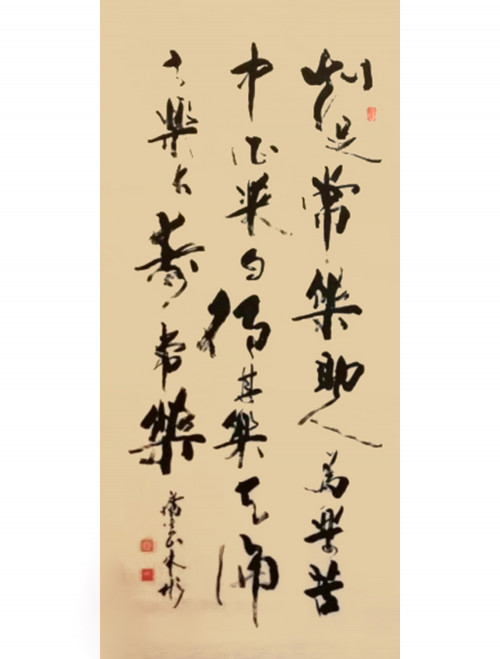 知足常樂助人為樂苦
中作樂自得其樂天倫
之樂長壽常樂